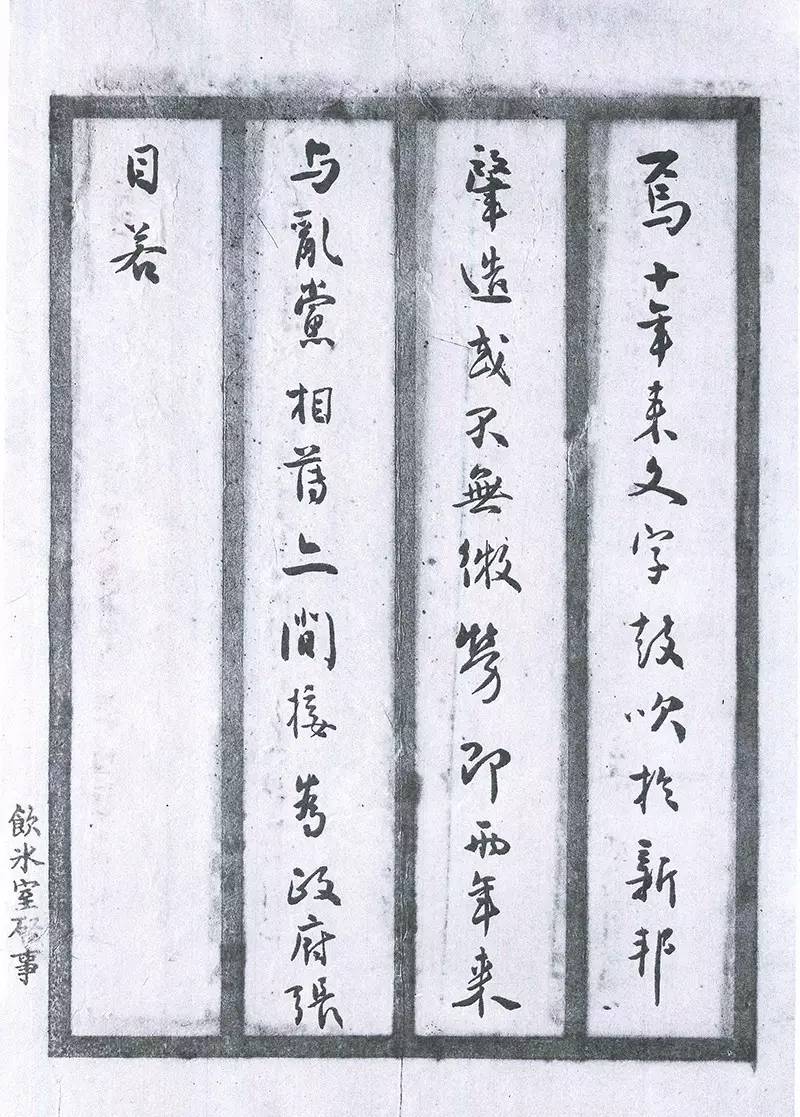 焉十年来文字鼓吹於新邦
肇造或不無微勞即兩年来
与亂黨相薄亦間接為政府張
目若
飲冰室啟事